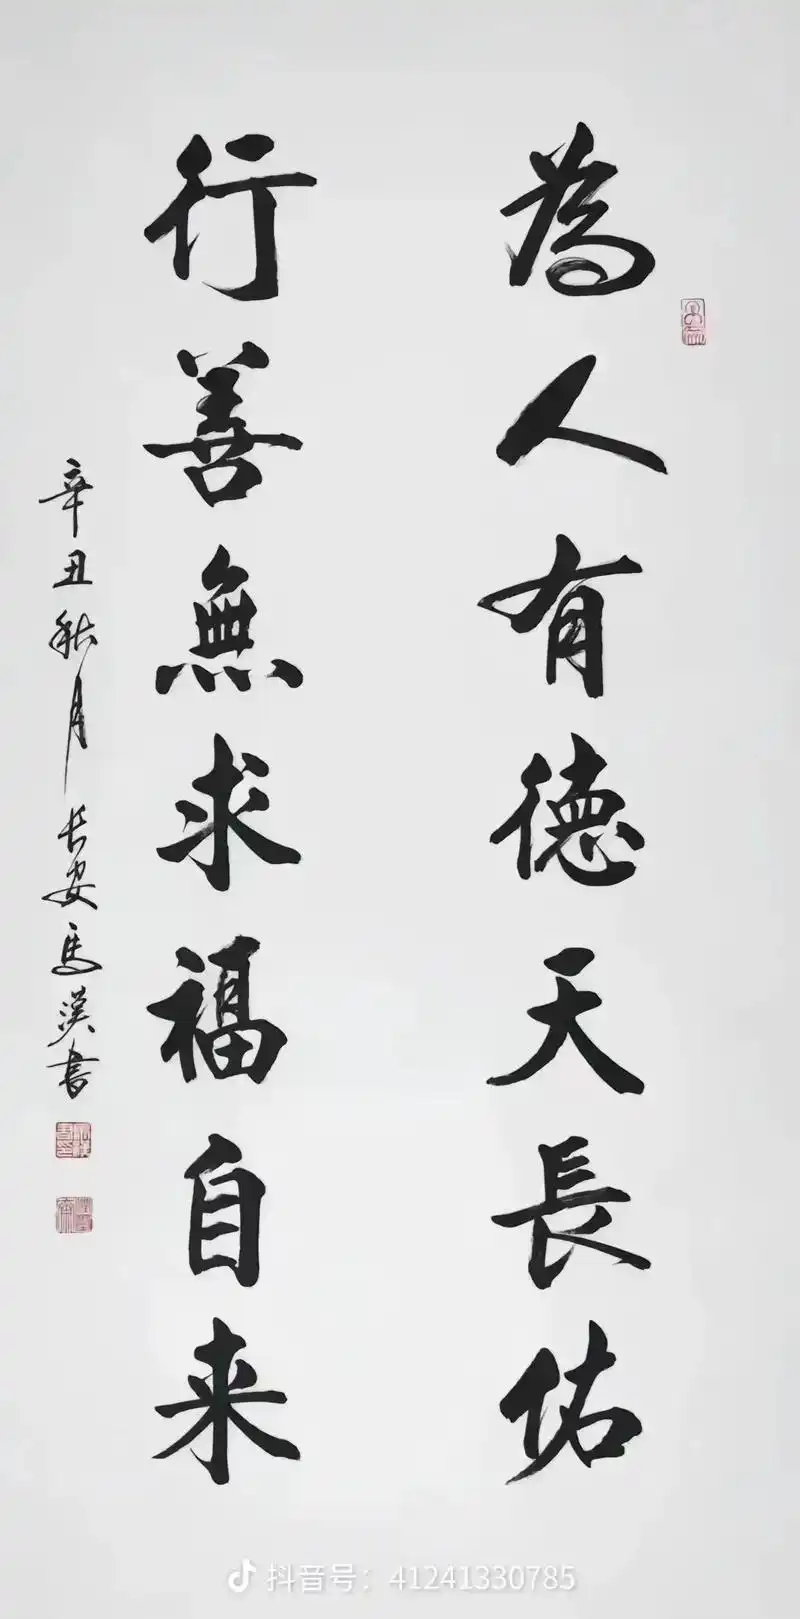 為人有德天長佑
行善無求福自来
辛丑秋月长安馬漢書
抖音号：41241330785